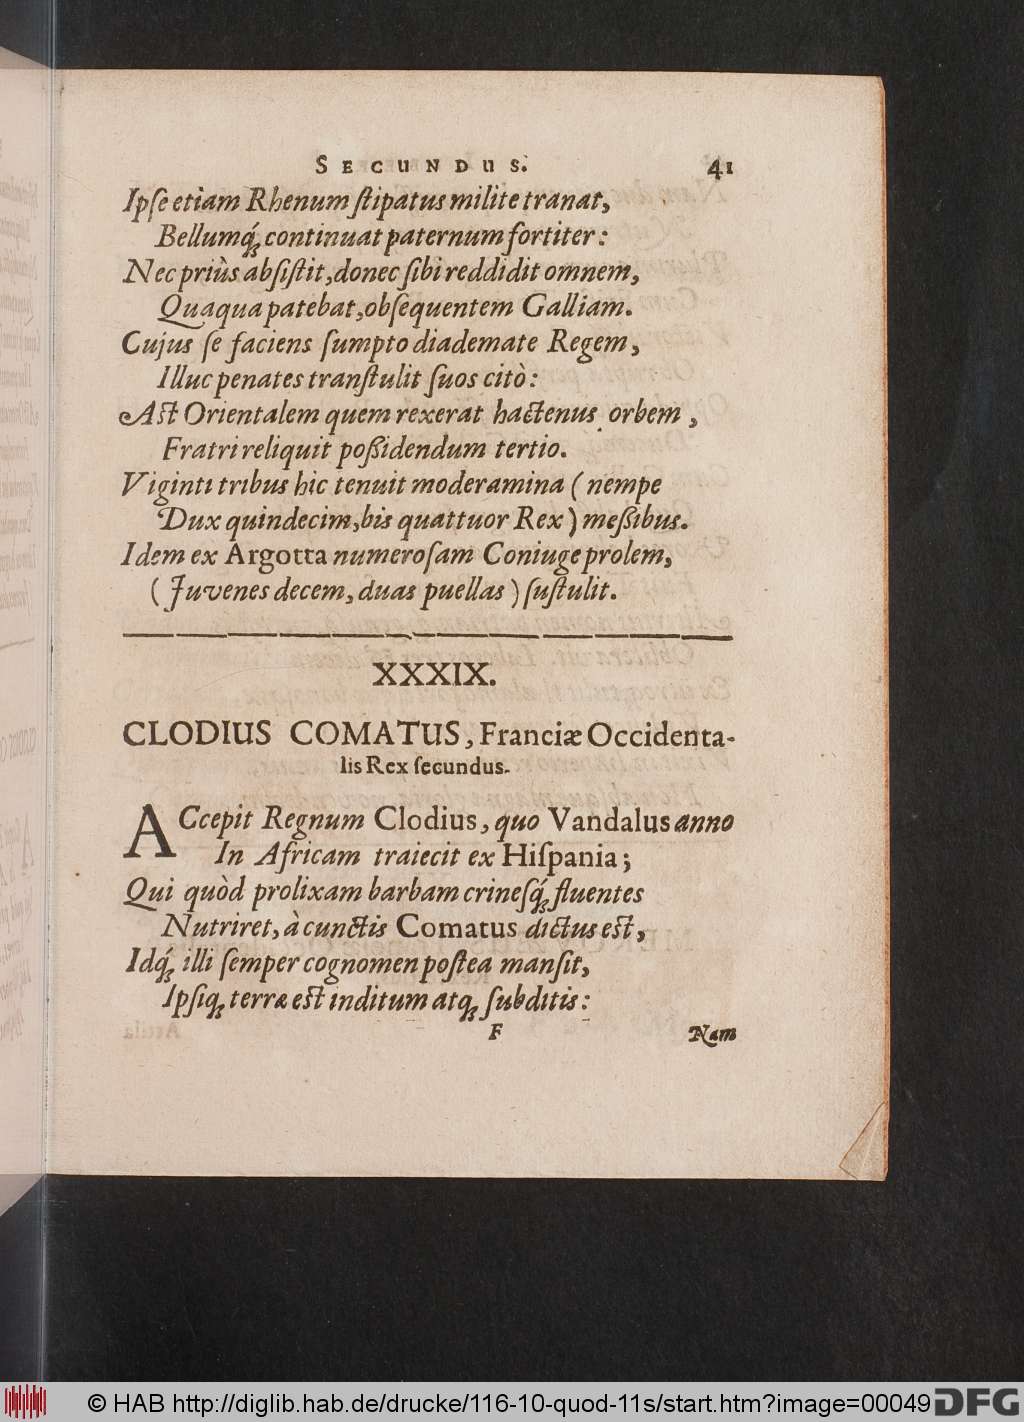 SECUNDUS. 41
Ipſe etiam Rhenum ſtipatus milite tranat,
Bellumq́; continuat paternum fortiter:
Nec priùs abſiſtit, donec ſibi reddidit omnem,
Quaqua patebat, obſequentem Galliam.
Cujus ſe faciens ſumpto diademate Regem,
Illuc penates tranſtulit ſuos citò:
Aſt Orientalem quem rexerat hactenus orbem,
Fratri reliquit poßidendum tertio.
Viginti tribus hic tenuit moderamina (nempe
Dux quindecim, bis quattuor Rex) meßibus.
Idem ex Argotta numeroſam Coniuge prolem,
(Juvenes decem, duas puellas) ſuſtulit.
XXXIX.
CLODIUS COMATUS, Franciæ Occidenta-
lis Rex ſecundus.
ACcepit Regnum Clodius, quo Vandalus anno
In Africam traiecit ex Hiſpania;
Qui quòd prolixam barbam crineſq́; fluentes
Nutriret, à cunctis Comatus dictus eſt,
Idq́; illi ſemper cognomen poſtea manſit,
Ipſiq; terræ eſt inditum atq; ſubditis:
F Nam
© HAB http://diglib.hab.de/drucke/116-10-quod-11s/start.htm?image=00049 DFG